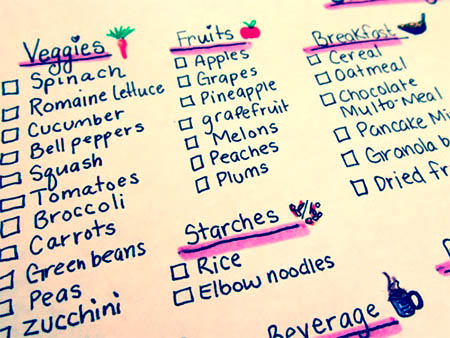 Veggies
Spinach
Romaine lettuce
Cucumber
Bell peppers
Squash
Tomatoes
Broccoli
Carrots
Green beans
Peas
Zucchini
Fruits
Apples
Grapes
Pineapple
grapefruit
Melons
Peaches
Plums
Starches
Rice
Elbow noodles
Breakfast
Cereal
Oatmeal
Chocolate
Malto-Meal
Pancake
Granola
Dried
Beverage